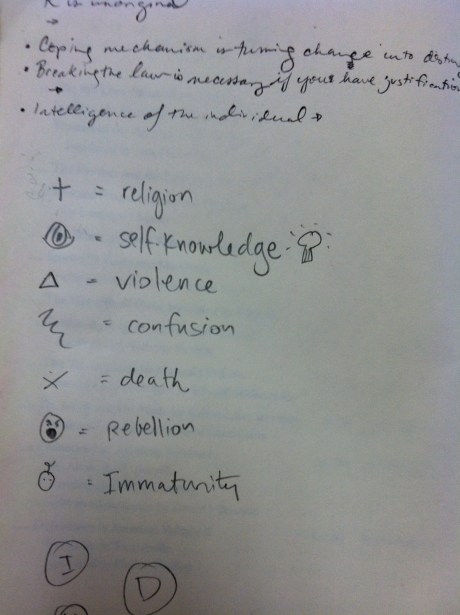 is unoriginal
• Coping mechanism is turning change into
• Breaking the law is necessary if you have justification
• Intelligence of the individual →
+ = religion
= self-knowledge
△ = violence
= confusion
X = death
= Rebellion
= Immaturity
I
D